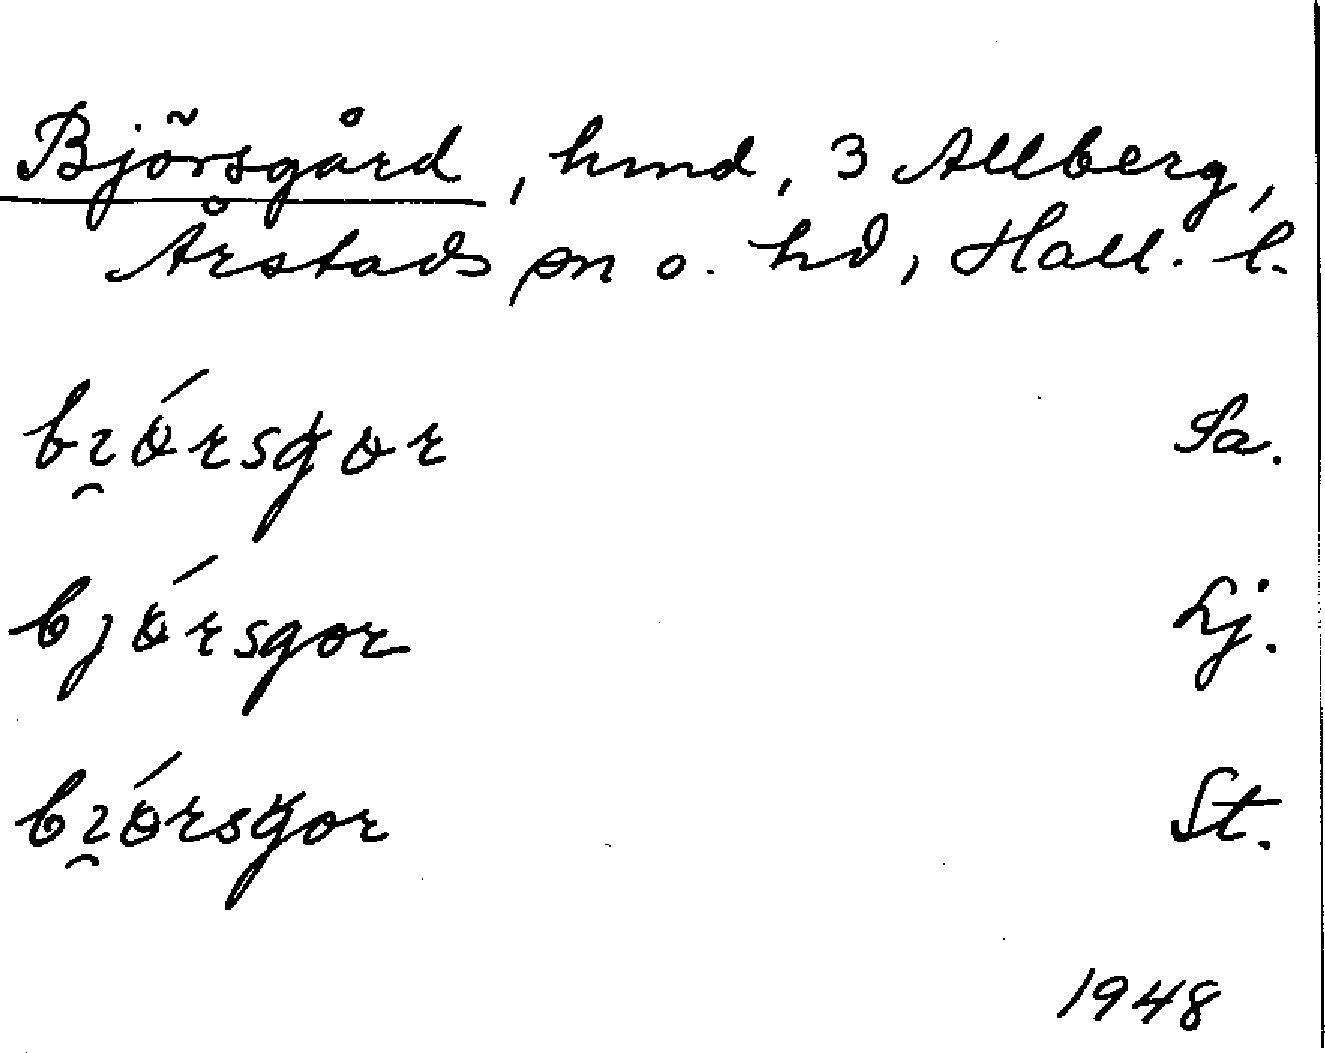 Björsgård, hmd, 3 Allberg,
Årstads sn o. hd, Hall. l.
bɿǿrsgor Sa.
bjǿrsgor Lj.
bɿǿrsgor St.
1948